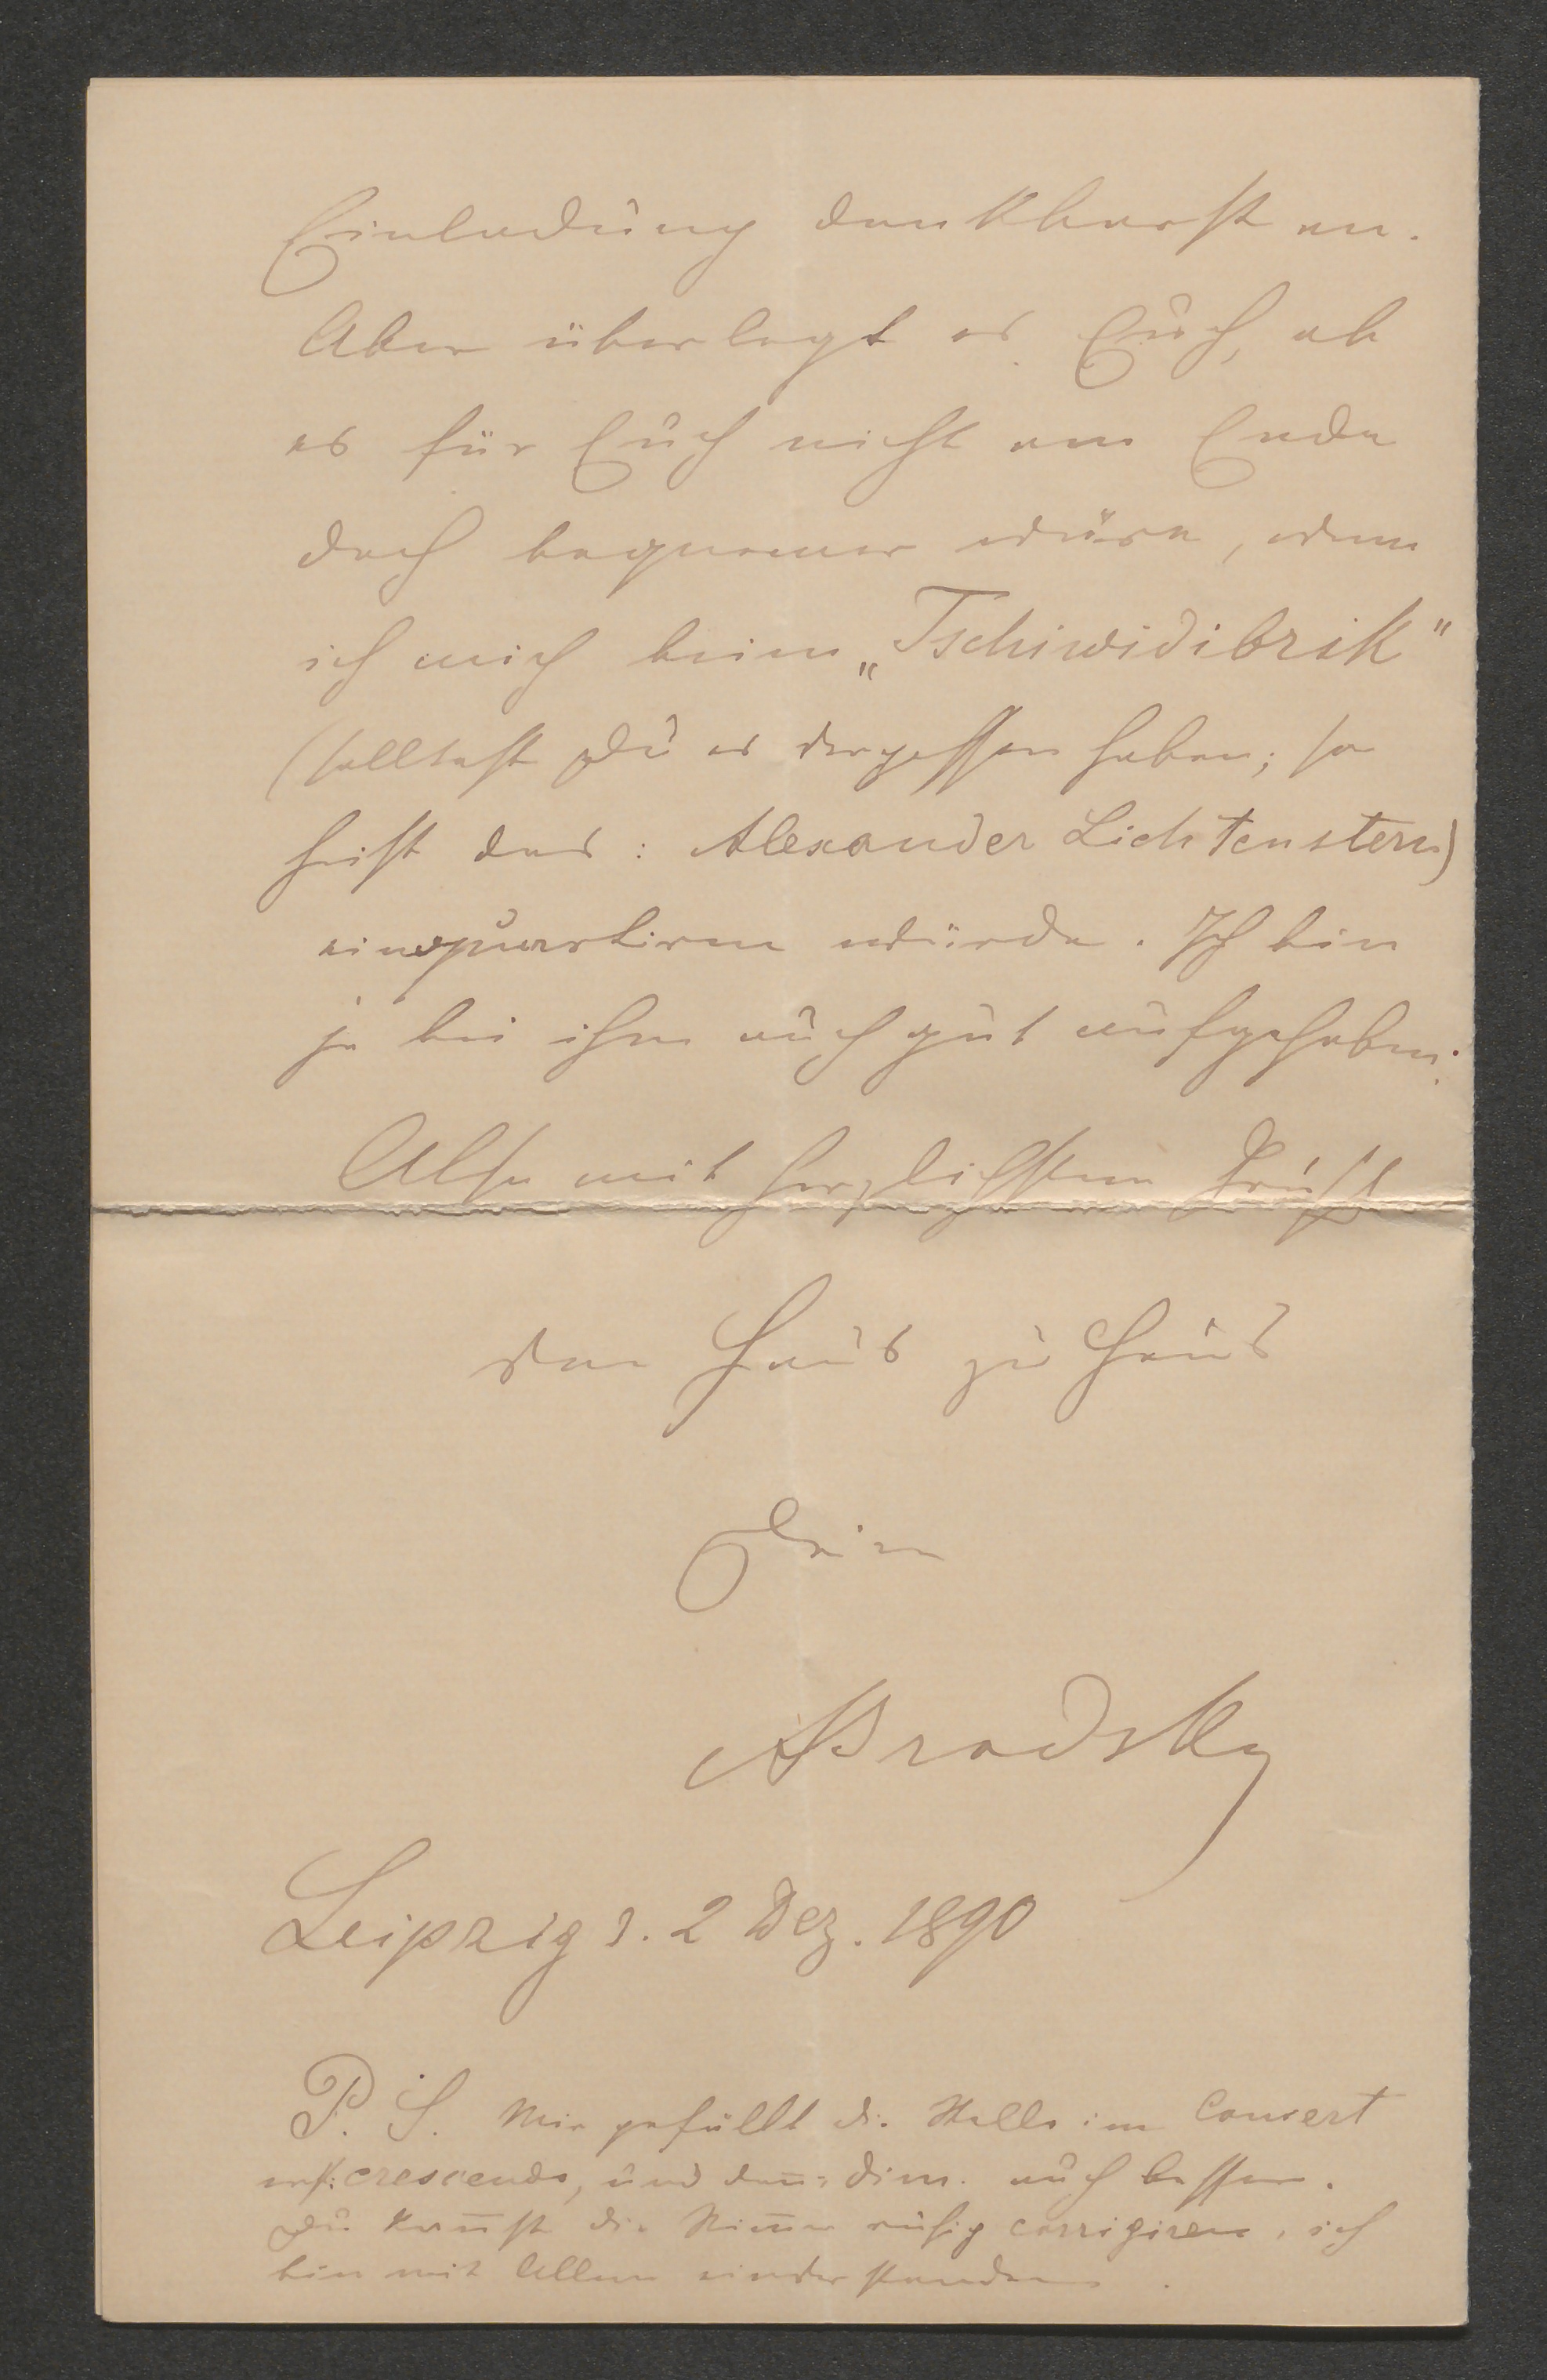 Einladung dankbarst an.
Aber überlegt es Euch, ob
es für Euch nicht am Ende
doch bequemer wäre, wenn
ich mich beim „Tschiwidibrik“
(solltest Du es vergessen haben; so
heist das: Alexander Lichtenstern)
einquartiren würde. Ich bin
ja bei ihm auch gut aufgehoben.
Also mit herzlichstem Gruß
von Haus zu Haus
Dein
ABrodsky
Leipzig d. 2 Dez. 1890
P. S. Mir gefällt die Stelle im Concert
erst: crescendo, und dan̄: dim. auch besser.
Du kan̄st die Stim̄e ruhig corrigiren, ich
bin mit Allem einverstanden.